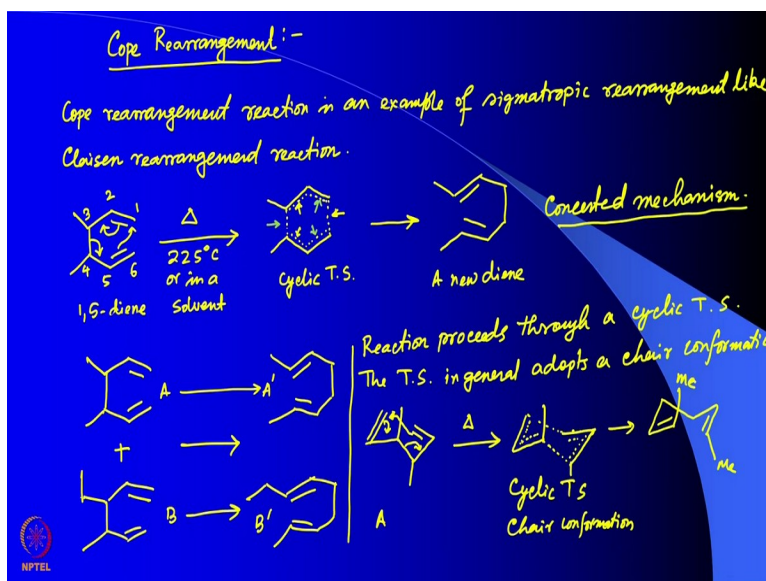 Cope Rearrangement :-
Cope rearrangement reaction is an example of sigmatropic rearrangement like
Claisen rearrangement reaction.
2
3
1
4
5
6
1,5-diene
Δ
225°C
or in a
solvent
Cyclic T.S.
A new diene
Concerted mechanism.
A
A'
+
B
B'
Reaction proceeds through a cyclic T.S.
The T.S. in general adopts a chair conformatio
A
Δ
Cyclic TS
Chair conformation
Me
Me
NPTEL